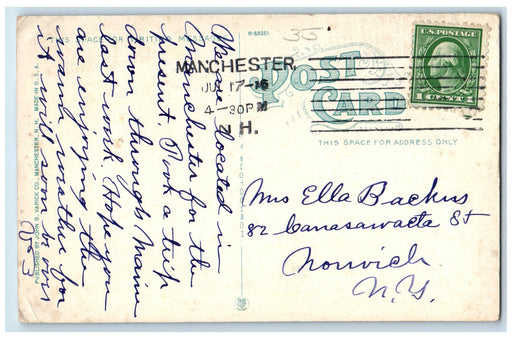 THIS SPACE FOR WRITING MESSAGES
R-68251
33
U.S. POSTAGE
1 CENT 1
MANCHESTER
JUL 17-16
4-30PM
N.H.
POST
CARD
THIS SPACE FOR ADDRESS ONLY
We are located in
Manchester for the
present. Took a trip
down through Maine
last week. Hope you
are enjoying the
warm weather for
it will soon be over
PUBLISHED BY JOHN B. VARICK CO., MANCHESTER, N.H. MADE IN U.S.A.
Mrs Ella Backus
82 Canasawacta St
Norwich
N.Y.